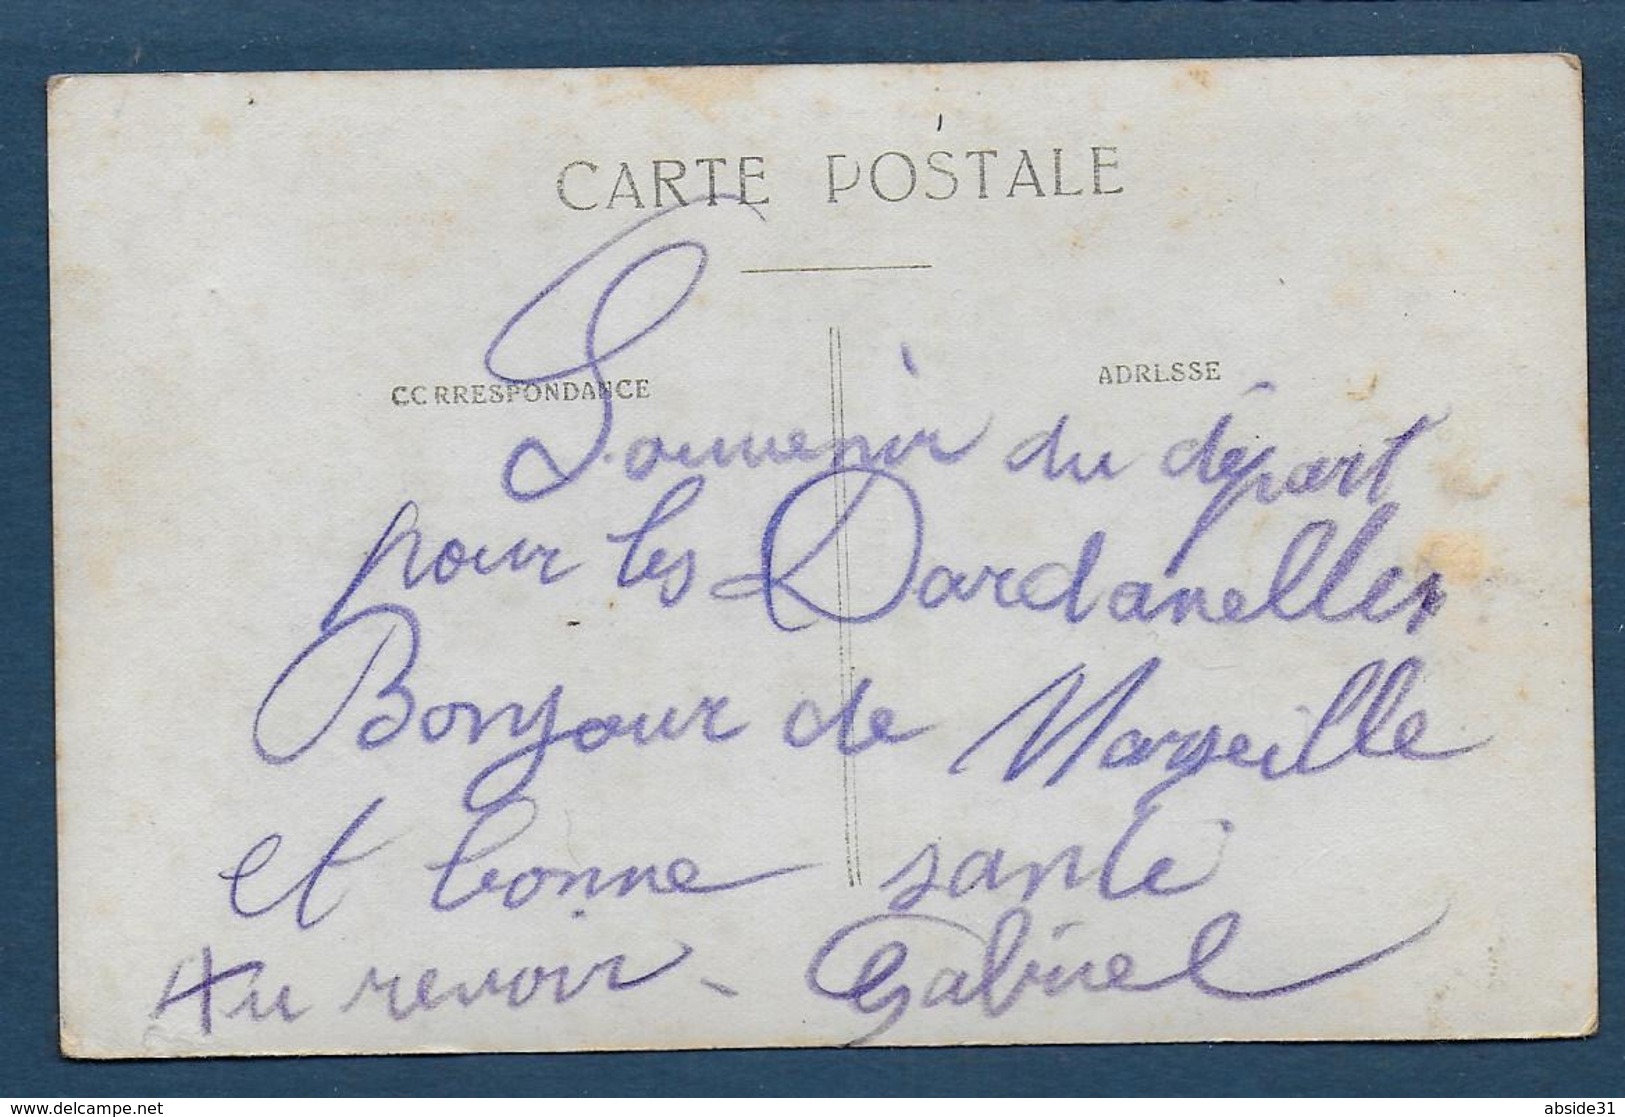 CARTE POSTALE
CORRESPONDANCE
ADRESSE
Souvenir du départ
pour les Dardanelles
Bonjour de Marseille
et bonne santé
Au revoir - Gabriel
www.delcampe.net
abside31